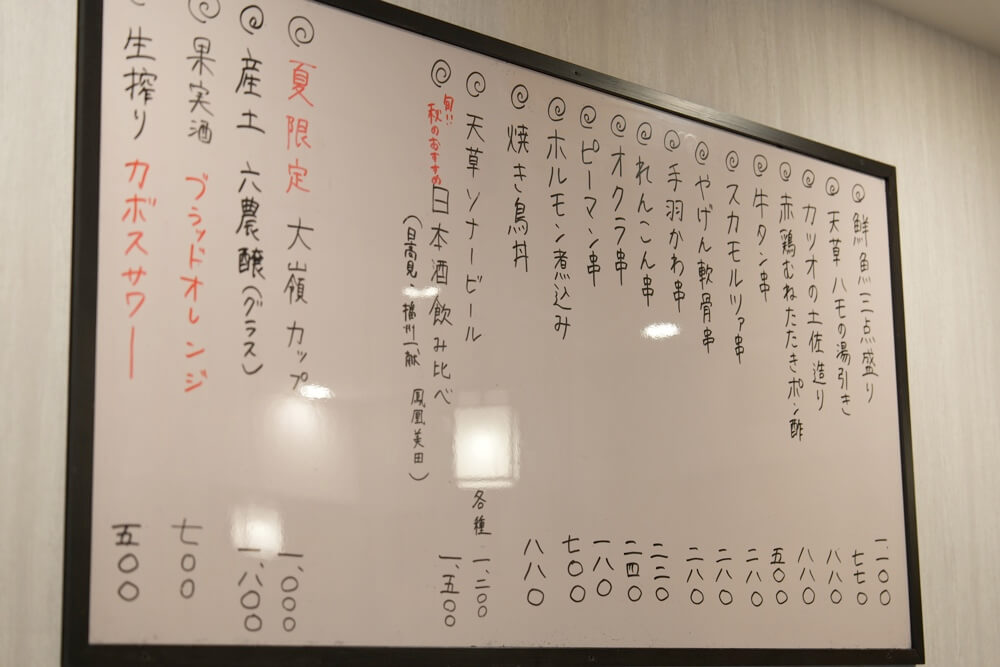 鮮魚三点盛り 一、一〇〇
天草ハモの湯引き 七七〇
カツオの土佐造り 八八〇
赤鶏むねたたきポン酢 八八〇
牛タン串 五〇〇
スカモルツァ串 二八〇
やげん軟骨串 二八〇
手羽かわ串 二八〇
れんこん串 二二〇
オクラ串 二四〇
ピーマン串 一八〇
ホルモン煮込み 七〇〇
焼き鳥丼 八八〇
天草ソナービール 各種 一、二〇〇
旬!! 秋のおすすめ 日本酒飲み比べ 一、五〇〇
(日高見・播州一献 鳳凰美田)
夏限定 大嶺カップ 一、〇〇〇
産土 六農醸(グラス) 一、八〇〇
果実酒 ブラッドオレンジ 七〇〇
生搾り カボスサワー 五〇〇